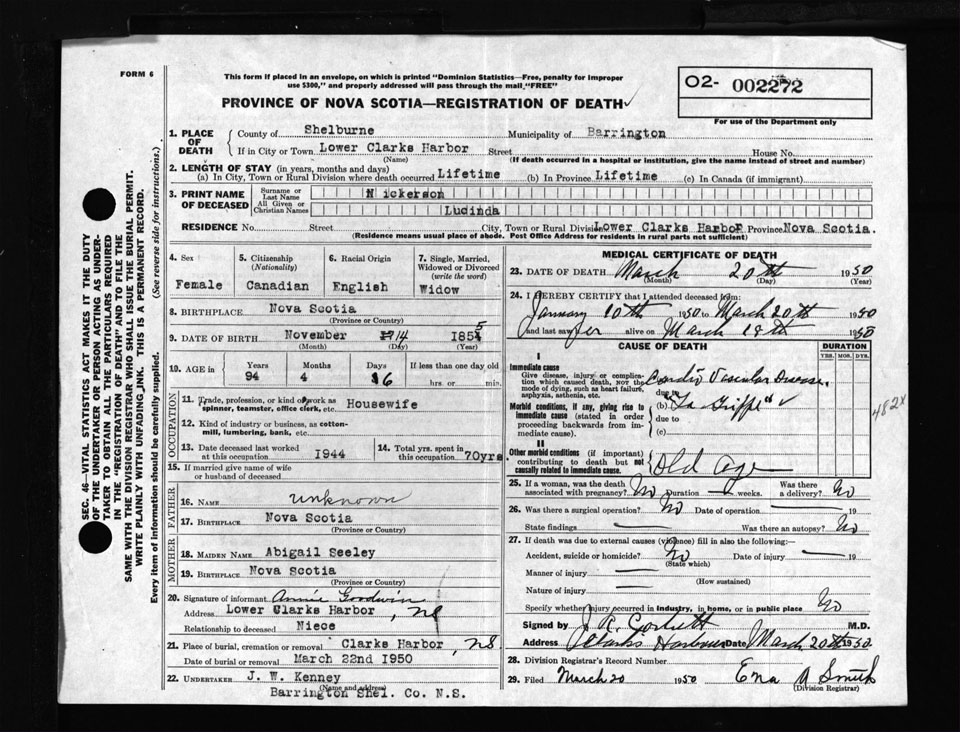 FORM 6
This form if placed in an envelope, on which is printed "Dominion Statistics—Free, penalty for improper
use $300," and properly addressed will pass through the mail "FREE"
PROVINCE OF NOVA SCOTIA—REGISTRATION OF DEATH ✓
O2- 002272
For use of the Department only
SEC. 46—VITAL STATISTICS ACT MAKES IT THE DUTY
OF THE UNDERTAKER OR PERSON ACTING AS UNDER-
TAKER TO OBTAIN ALL THE PARTICULARS REQUIRED
IN THE "REGISTRATION OF DEATH" AND TO FILE THE
SAME WITH THE DIVISION REGISTRAR WHO SHALL ISSUE THE BURIAL PERMIT.
WRITE PLAINLY WITH UNFADING INK. THIS IS A PERMANENT RECORD.
Every item of information should be carefully supplied. (See reverse side for instructions.)
1. PLACE OF DEATH County of Shelburne Municipality of Barrington
If in City or Town Lower Clarks Harbor Street House No.
(Name) (If death occurred in a hospital or institution, give the name instead of street and number)
2. LENGTH OF STAY (in years, months and days)
(a) In City, Town or Rural Division where death occurred Lifetime (b) In Province Lifetime (c) In Canada (if immigrant)
3. PRINT NAME OF DECEASED Surname or Last Name Nickerson
All Given or Christian Names Lucinda
RESIDENCE No. Street City, Town or Rural Division Lower Clarks Harbor Province Nova Scotia.
(Residence means usual place of abode. Post Office Address for residents in rural parts not sufficient)
4. Sex Female
5. Citizenship (Nationality) Canadian
6. Racial Origin English
7. Single, Married, Widowed or Divorced (write the word) Widow
8. BIRTHPLACE Nova Scotia
(Province or Country)
9. DATE OF BIRTH November 14 1855
(Month) (Day) (Year)
10. AGE in Years Months Days If less than one day old
94 4 6 hrs. or min.
OCCUPATION
11. Trade, profession, or kind of work as spinner, teamster, office clerk, etc. Housewife
12. Kind of industry or business, as cotton-mill, lumbering, bank, etc.
13. Date deceased last worked at this occupation 1944
14. Total yrs. spent in this occupation 70yrs
15. If married give name of wife or husband of deceased
FATHER
16. NAME unknown
17. BIRTHPLACE Nova Scotia
(Province or Country)
MOTHER
18. MAIDEN NAME Abigail Seeley
19. BIRTHPLACE Nova Scotia
(Province or Country)
20. Signature of informant Annie Goodwin
Address Lower Clarks Harbor, NS
Relationship to deceased Niece
21. Place of burial, cremation or removal Clarks Harbor, NS
Date of burial or removal March 22nd 1950
22. UNDERTAKER J. W. Kenney
(Name and address)
Barrington Shel. Co. N.S.
MEDICAL CERTIFICATE OF DEATH
23. DATE OF DEATH March 20th 1950
(Month) (Day) (Year)
24. I HEREBY CERTIFY that I attended deceased from:
January 10th 1950 to March 20th 1950
and last saw her alive on March 18th 1950
CAUSE OF DEATH DURATION
YRS. MOS. DYS.
I
Immediate cause
Give disease, injury or complication which caused death, NOT the mode of dying, such as heart failure, asphyxia, asthenia, etc.
Cardio Vascular Disease.
due to
Morbid conditions, if any, giving rise to immediate cause (stated in order proceeding backwards from immediate cause).
(b) "La Grippe" ✓
due to
(c)
482x
II
Other morbid conditions (if important) contributing to death but not causally related to immediate cause.
Old Age
25. If a woman, was the death associated with pregnancy? No Duration — weeks. Was there a delivery? No
26. Was there a surgical operation? No Date of operation — 19
State findings — Was there an autopsy? No
27. If death was due to external causes (violence) fill in also the following:—
Accident, suicide or homicide? No Date of injury — 19
(State which)
Manner of injury —
(How sustained)
Nature of injury —
Specify whether injury occurred in industry, in home, or in public place No
Signed by M.D.
Address Clarks Harbour Date March 20th 1950.
28. Division Registrar's Record Number
29. Filed March 20 1950 Ena A Smith
(Division Registrar)